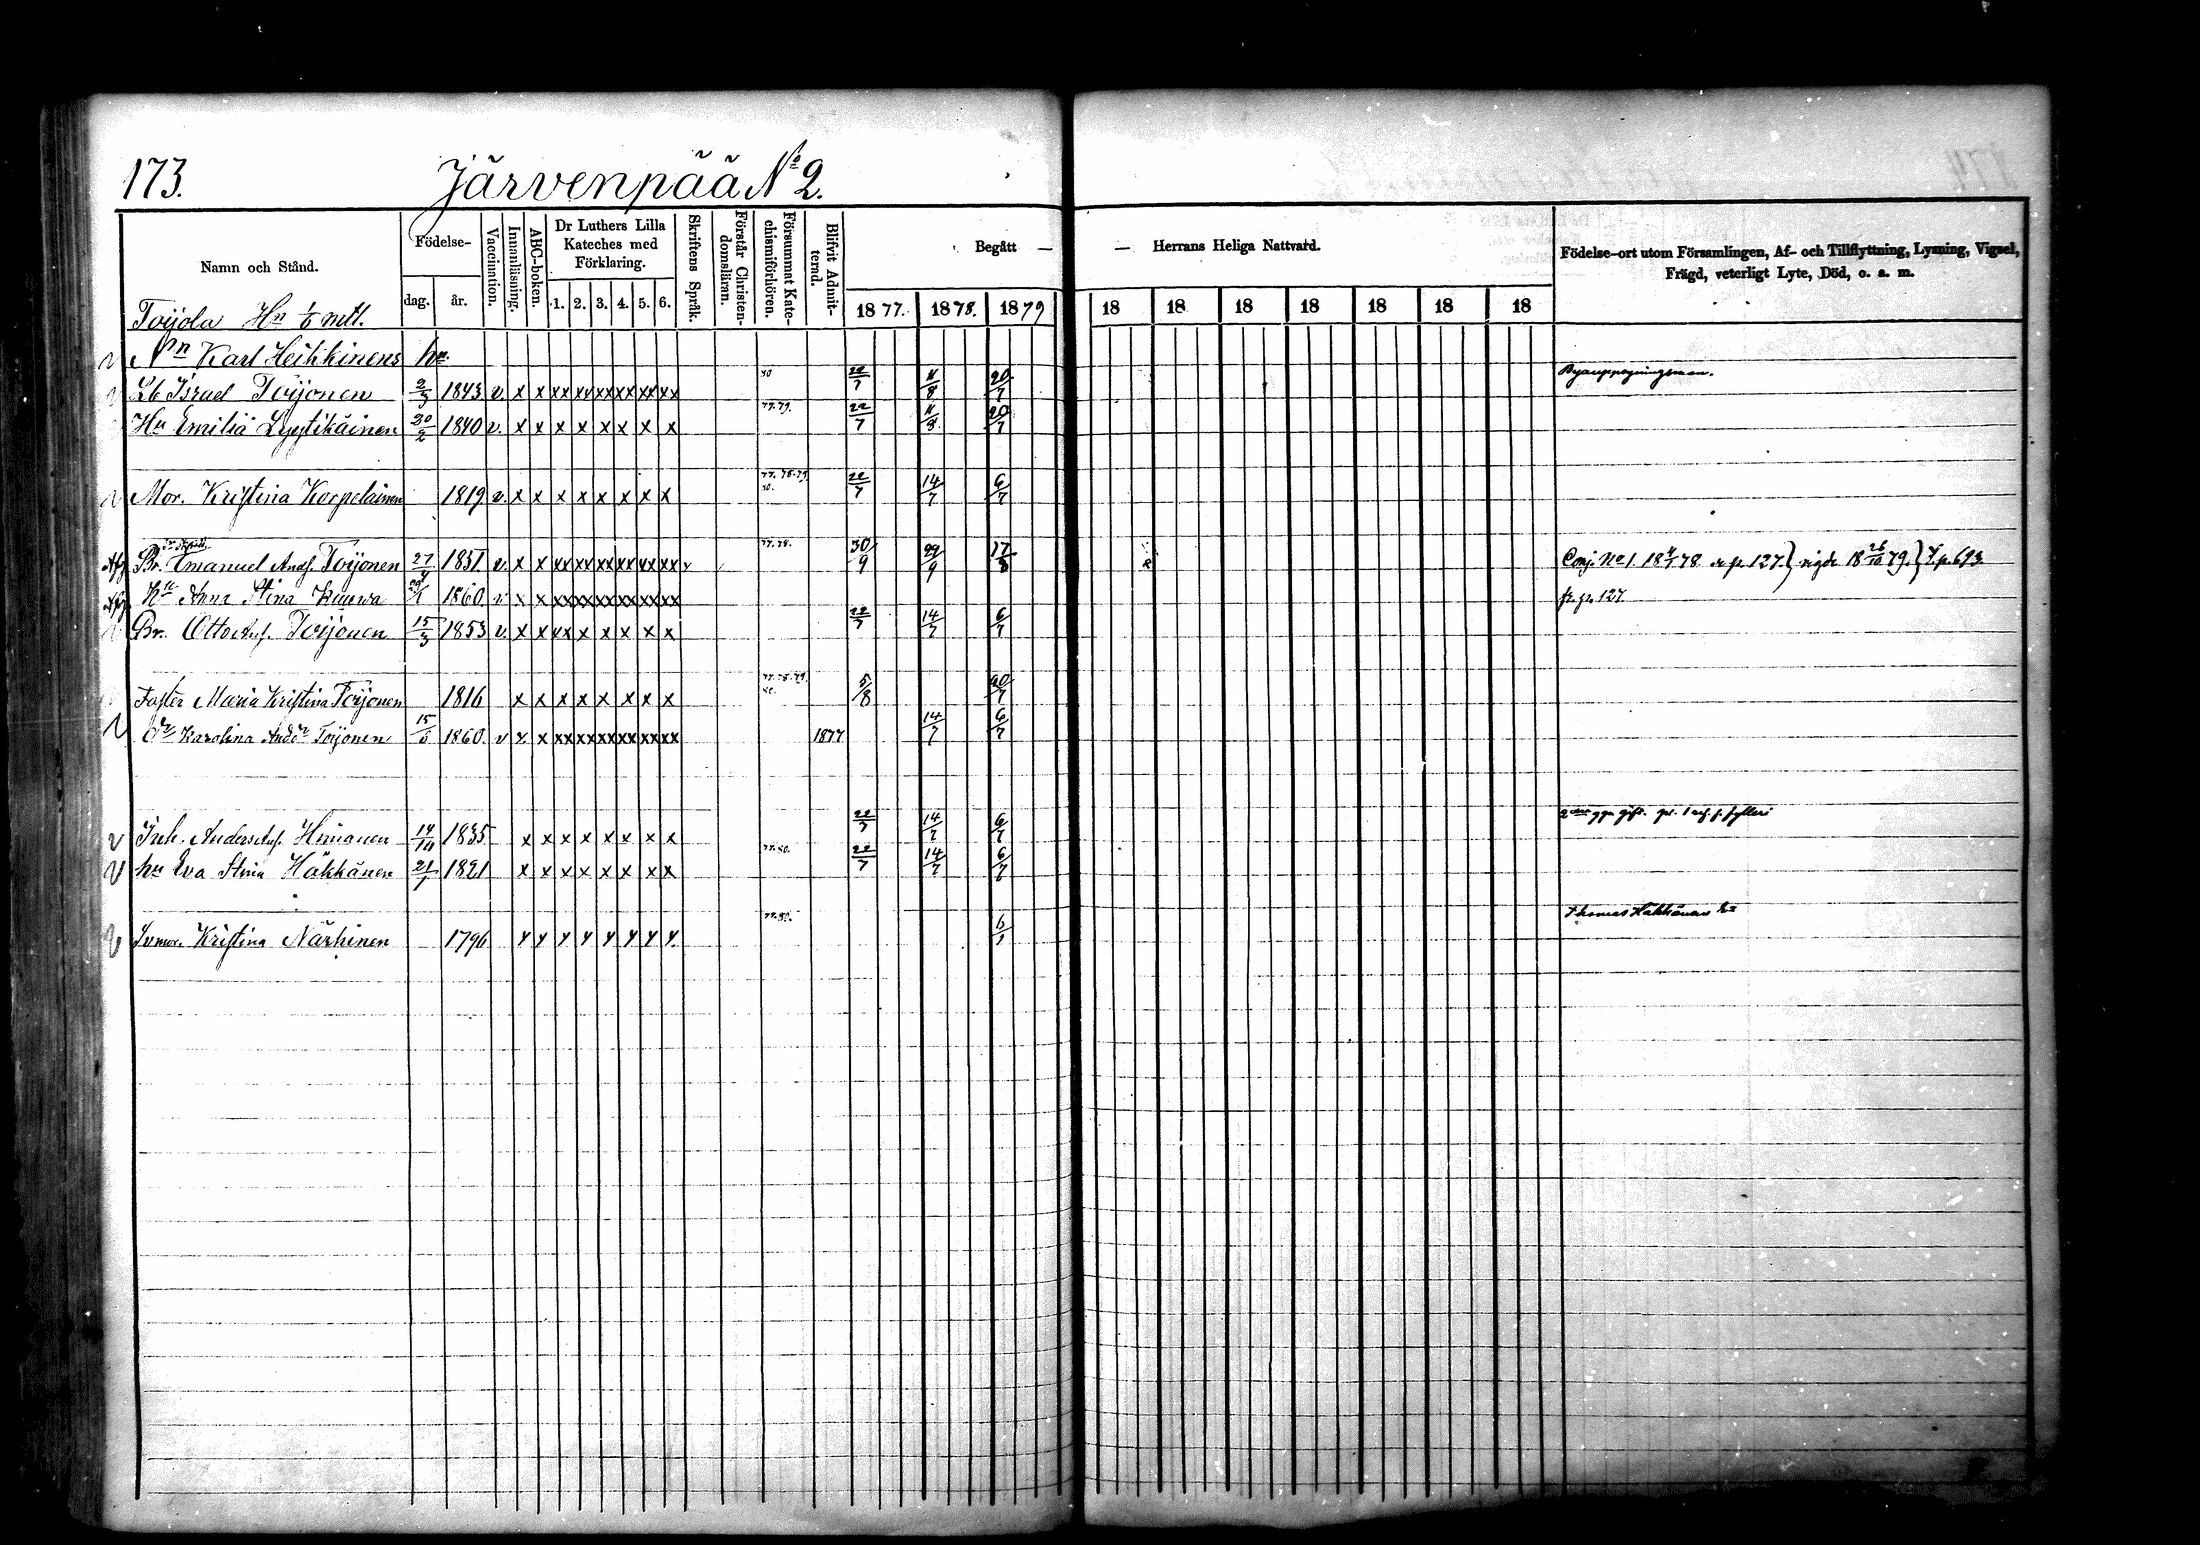 173. Järvenpää No 2.
Namn och Stånd.
Födelse-
dag.
år.
Vaccination.
Innanläsning.
ABC-boken.
Dr Luthers Lilla
Kateches med
Förklaring.
1. 2. 3. 4. 5. 6.
Skriftens Språk.
Förstår Christen-
domsläran.
Försummat Kate-
chismiförhören.
Blifvit Admit-
terad.
Begått —
— Herrans Heliga Nattvard.
1877. 1878. 1879
18 18 18 18 18 18 18
Födelse-ort utom Församlingen, Af- och Tillflyttning, Lysning, Vigsel,
Frägd, veterligt Lyte, Död, o. a. m.
Toijola Hn mtl.
Nn Karl Heikkinens hn.
Lb Israel Toijonen 2/3 1843 v. x x xx xx xx xx xx xx 80 22/7 11/8 20/7
Hu Emilia Lyytikäinen 20/2 1840 v. x x x x x x x x 77.79. 22/7 11/8 20/7
Mor. Kristina Korpelainen 1819 v. x x x x x x x x 77. 78. 79. 80. 22/7 14/7 6/7
Br. Emanuel Ands. Toijonen 27/4 1851 v. x x xx xx xx xx xx xx v 77.78. 30/9 29/9 17/8 Conj. No 1. 18 78 p. 127. } vigde 18 26/10 79. } p. 693
Anna Stina 1860 v x x xx xx xx xx xx xx fr. p. 127
Br. Otto Ands. Toijonen 15/3 1853 v. x x xx x x x x x 22/7 14/7 6/7
Faster Maria Kristina Toijonen 1816 x x x x x x x x 77.78.79. 80. 5/8 20/7
Dr Karolina Andsdr Toijonen 15/5 1860. v x x xx xx xx xx xx xx 1877 14/7 6/7
Inh. Anders Ands. Himanen 14/10 1835 x x x x x x x x 22/7 14/7 6/7
hu Eva Stina Häkkänen 21/7 1821 x x x x x x x x 77.80. 22/7 14/7 6/7
Svmor. Kristina Närhinen 1796 y y y y y y y y 77.80. 6/7 Thomas Häkkänens